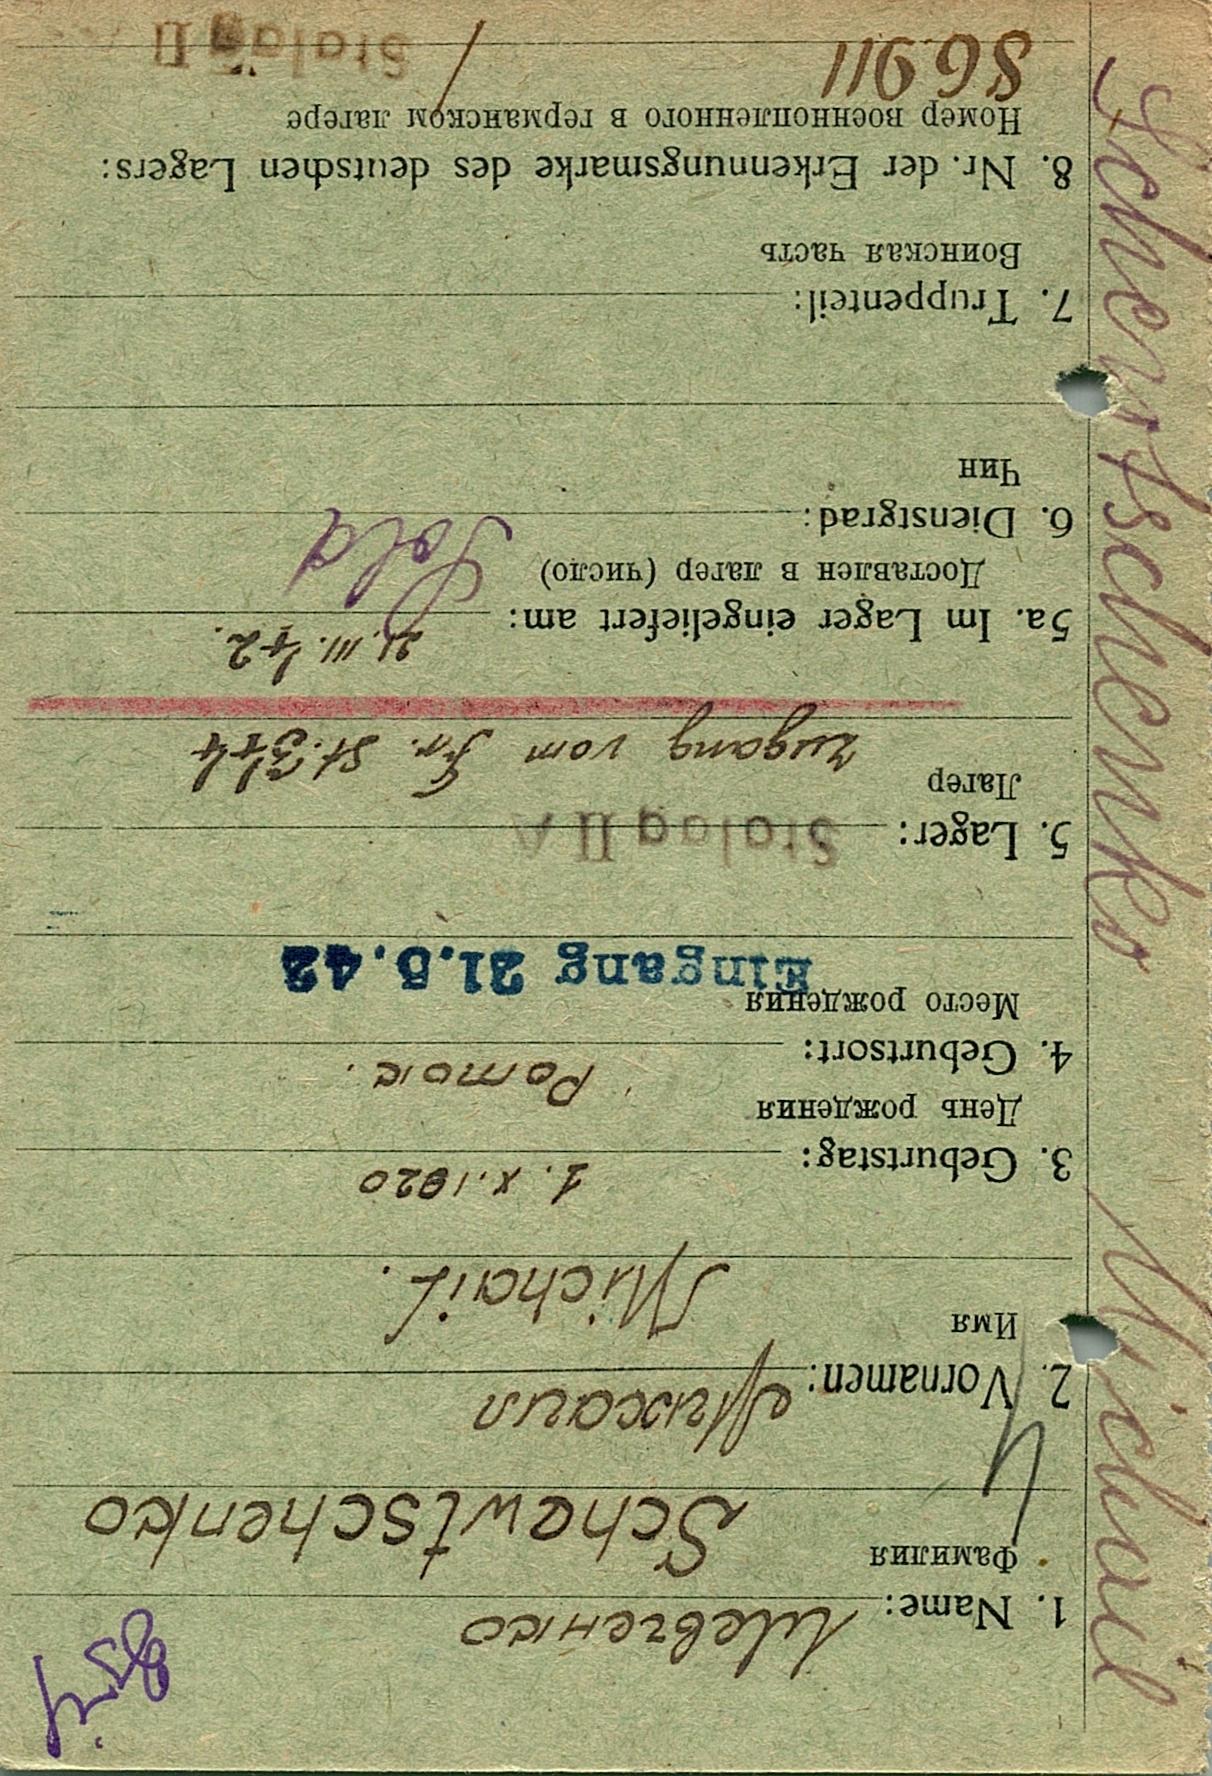 Schewtschenko Michail
1. Name: Шевченко
Фамилия Schewtschenko
2. Vornamen: Михаил
Имя Michail.
3. Geburtstag: 1.X.1920
День рождения
4. Geburtsort:
Место рождения
Eingang 21.5.42
5. Lager: Stalag II A
Лагер
zugang vom Fr. St. 344
5a. Im Lager eingeliefert am: 21.III.42.
Доставлен в лагер (число)
6. Dienstgrad: Sold
Чин
7. Truppenteil:
Воинская часть
8. Nr. der Erkennungsmarke des deutschen Lagers:
Номер военнопленного в германском лагере
86911 / Stalag II